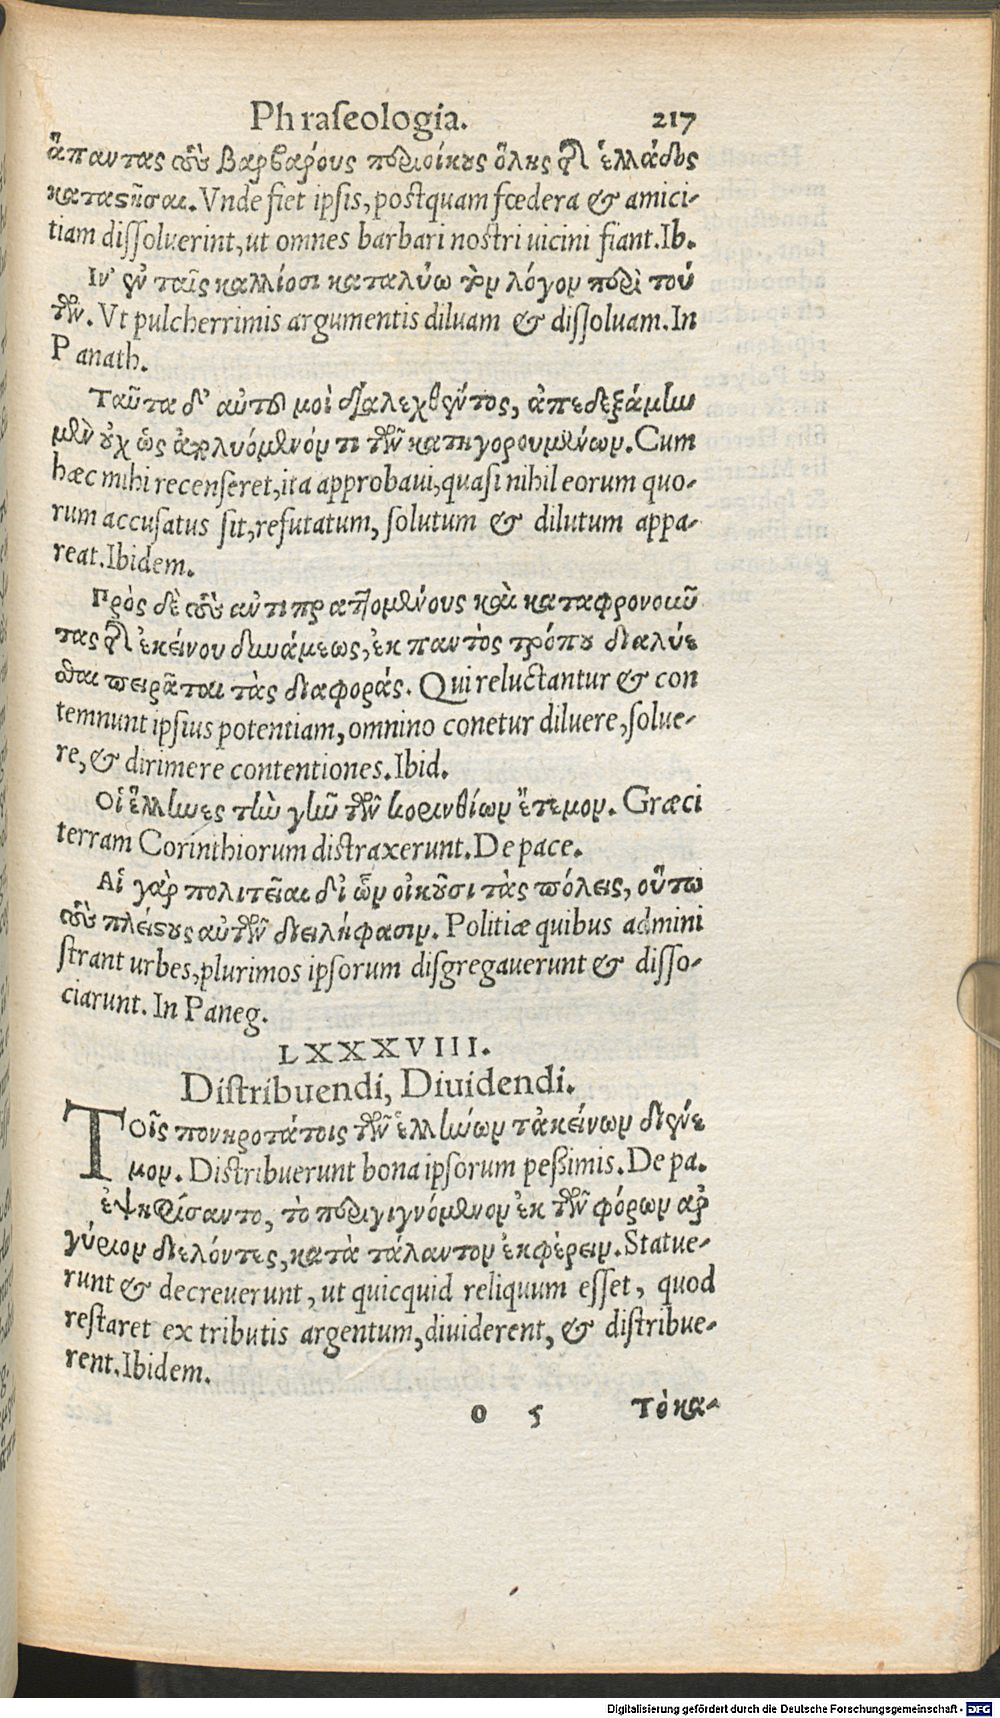 Phraſeologia. 217
ἅπαντας τοὺς βαρβάρους περιοίκους ὅλης τῆς ἑλλάδος
καταστῆσαι. Vnde fiet ipſis, poſtquam fœdera & amici-
tiam diſſoluerint, ut omnes barbari noſtri uicini fiant. Ib.
Ἵν' ἐν ταῖς καλλίοσι καταλύω τὸν λόγον περὶ τού
των. Vt pulcherrimis argumentis diluam & diſſoluam. In
Panath.
Ταῦτα δ' αὐτοῦ μοὶ διαλεχθέντος, ἀπεδεξάμην
μὲν οὐχ ὡς ἀπλυόμενόν τι τῶν κατηγορουμένων. Cum
hæc mihi recenſeret, ita approbaui, quaſi nihil eorum quo-
rum accuſatus ſit, refutatum, ſolutum & dilutum appa-
reat. Ibidem.
Πρὸς δὲ τοὺς ἀντιπραττομένους καὶ καταφρονοῦν
τας τῆς ἐκείνου δυνάμεως, ἐκ παντὸς τρόπου διαλύε
σθαι πειρᾶται τὰς διαφοράς. Qui reluctantur & con
temnunt ipſius potentiam, omnino conetur diluere, ſolue-
re, & dirimere contentiones. Ibid.
Οἱ ἕλληνες τὴν γῆν τῶν κορινθίων ἔτεμον. Græci
terram Corinthiorum diſtraxerunt. De pace.
Αἱ γὰρ πολιτεῖαι δι' ὧν οἰκοῦσι τὰς πόλεις, οὕτω
τοὺς πλείους αὐτῶν διειλήφασιν. Politiæ quibus admini
ſtrant urbes, plurimos ipſorum diſgregauerunt & diſſo-
ciarunt. In Paneg.
LXXXVIII.
Diſtribuendi, Diuidendi.
Τοῖς πονηροτάτοις τῶν ἑλλήνων τἀκείνων διένε
μον. Diſtribuerunt bona ipſorum peßimis. De pa.
ἐψηφίσαντο, τὸ περιγιγνόμενον ἐκ τῶν φόρων ἀρ
γύριον διελόντες, κατὰ τάλαντον ἐκφέρειν. Statue-
runt & decreuerunt, ut quicquid reliquum eſſet, quod
reſtaret ex tributis argentum, diuiderent, & diſtribue-
rent. Ibidem.
O 5 τὸ κα-
Digitalisierung gefördert durch die Deutsche Forschungsgemeinschaft - DFG